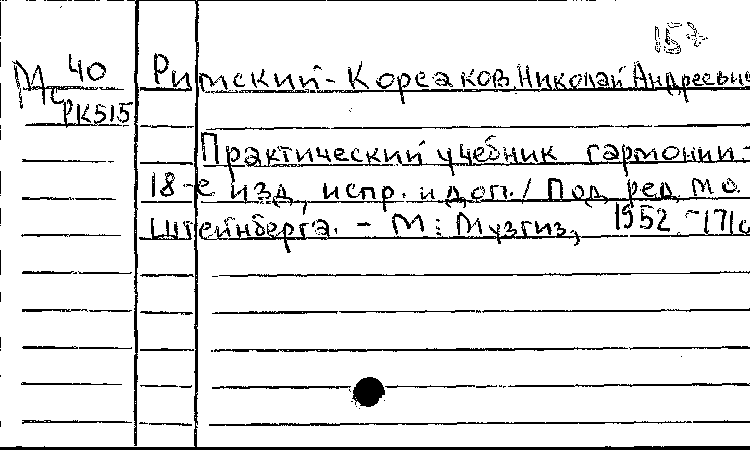 157
М 40 Римский-Корсаков, Николай Андреевич
РК515
Практический учебник гармонии.-
18-е изд, испр. и доп./ Под ред мо.
Штейнберга. - М: Музгиз, 1952 -171с